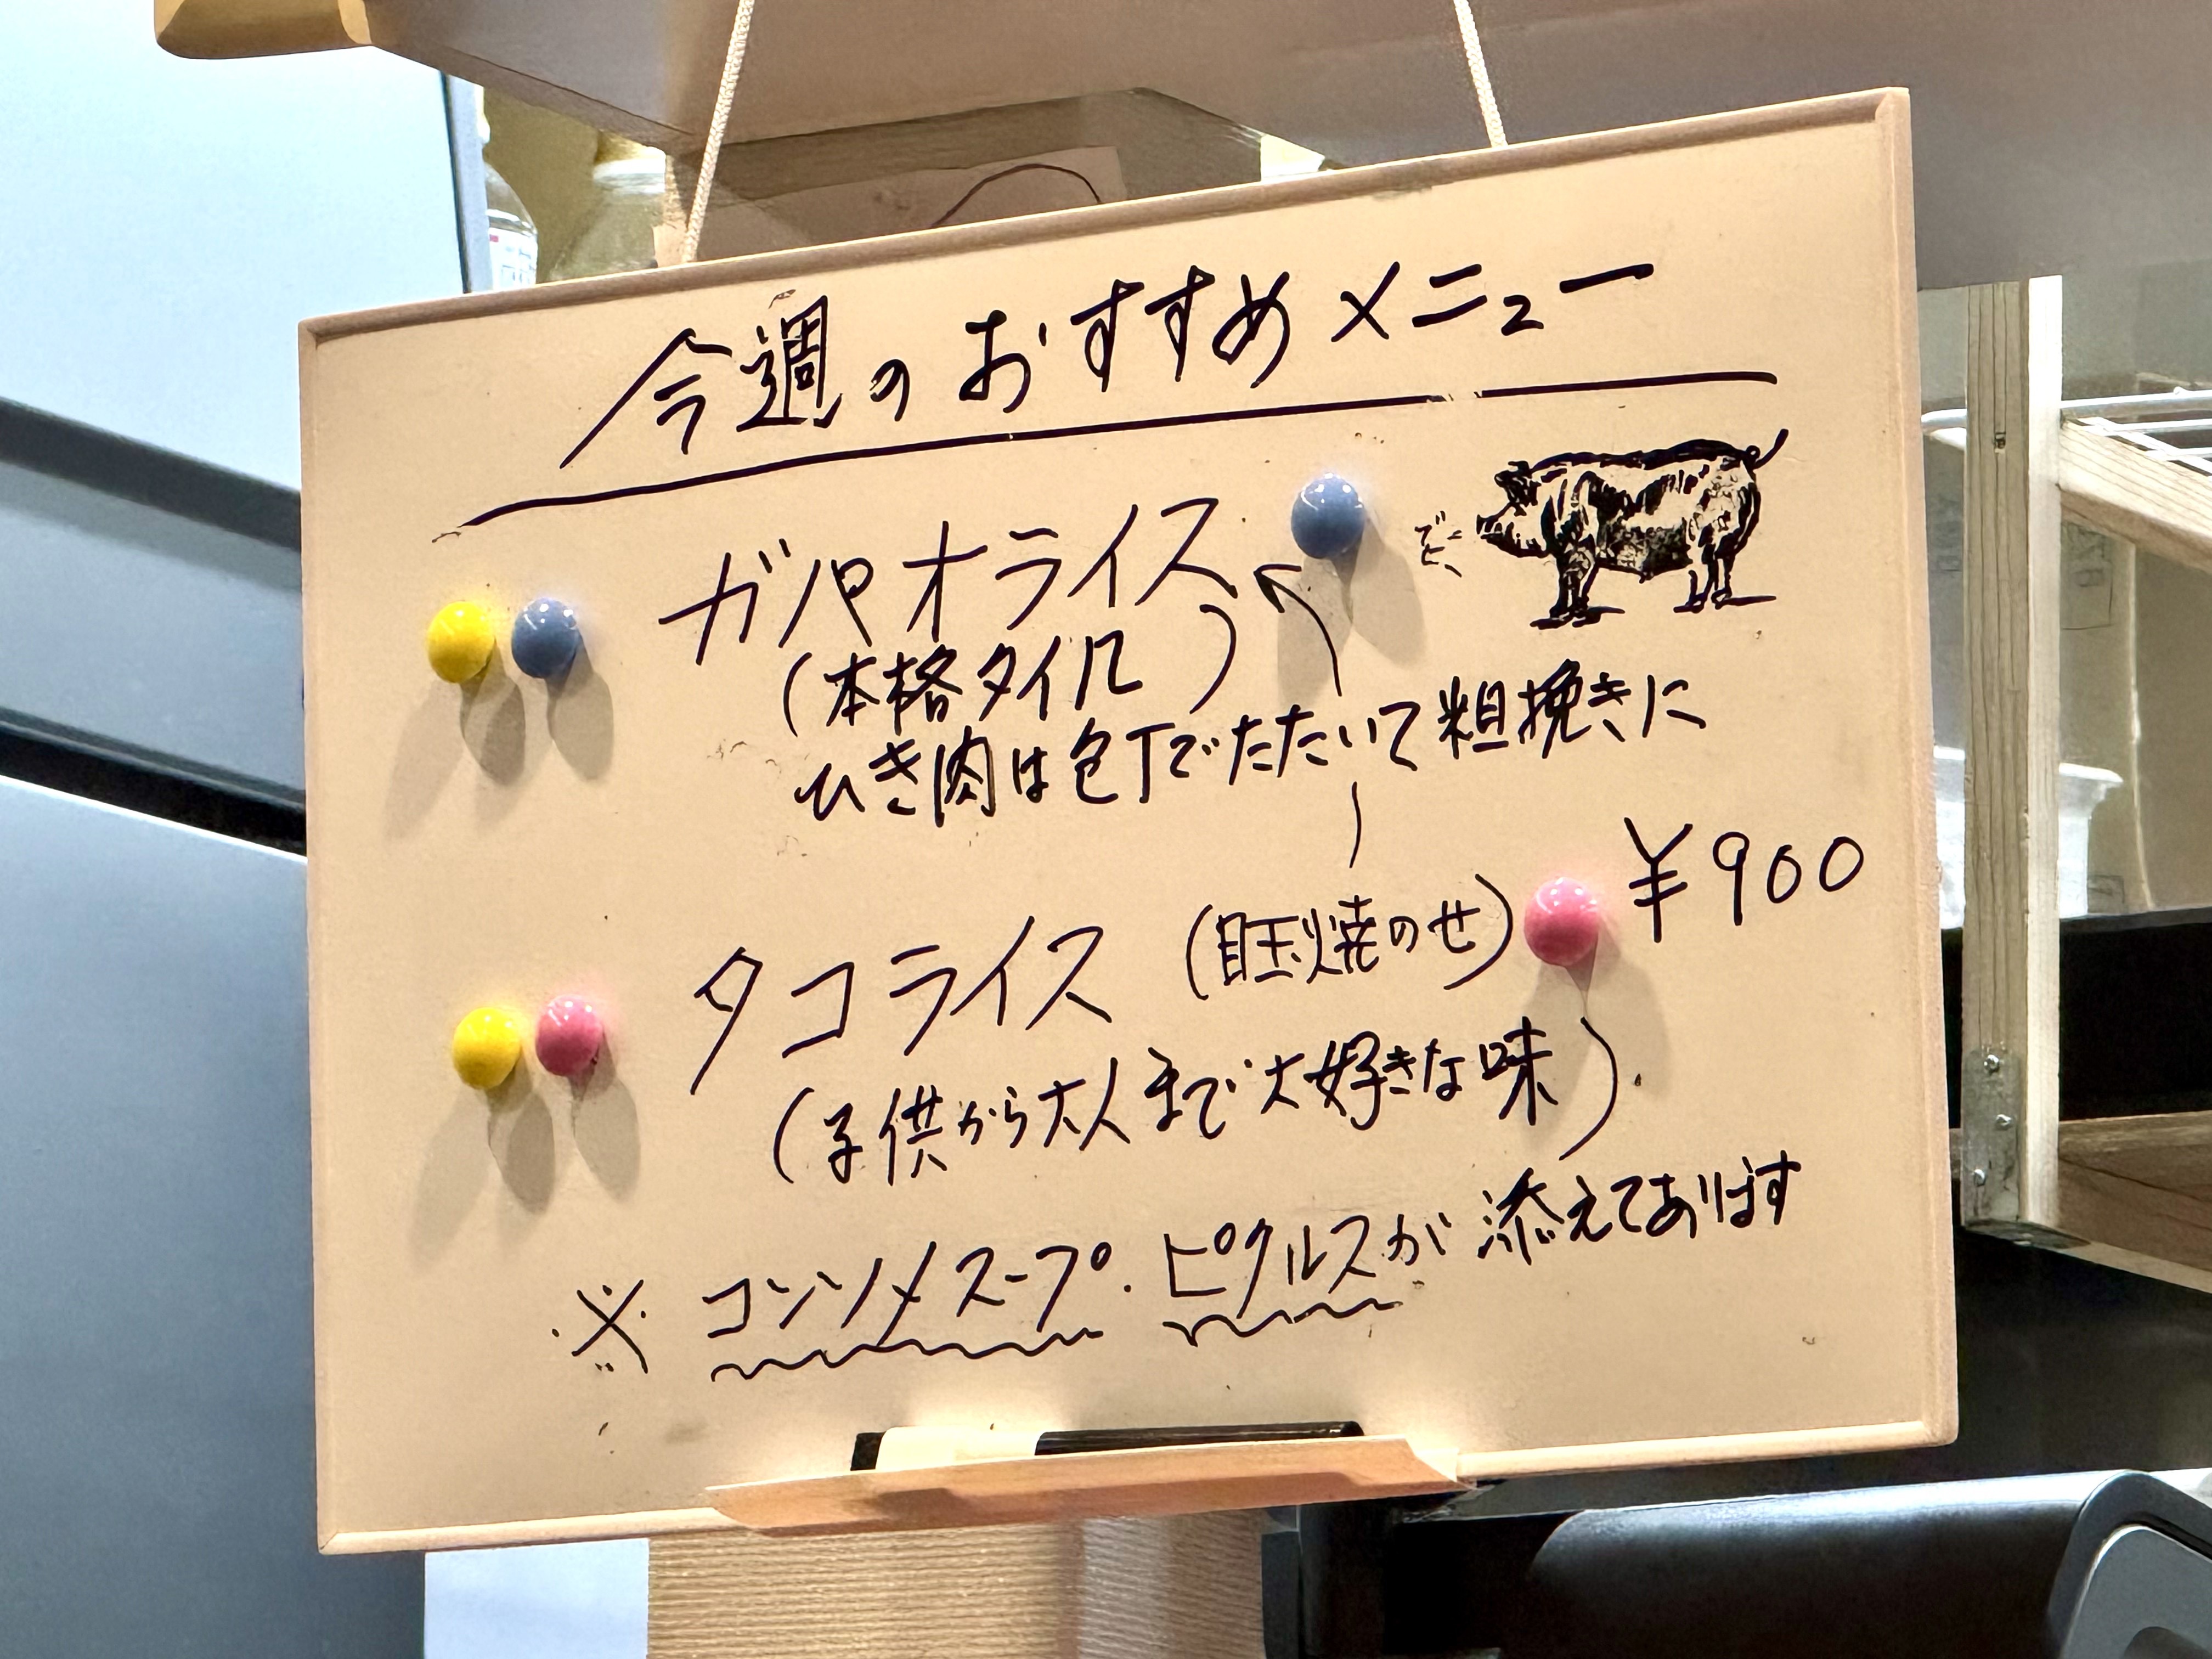 今週のおすすめメニュー
ガパオライス
(本格タイ風)
ひき肉は包丁でたたいて粗挽きに
タコライス (目玉焼のせ) ¥900
(子供から大人まで大好きな味)
※ コンソメスープ・ピクルスが添えてあります